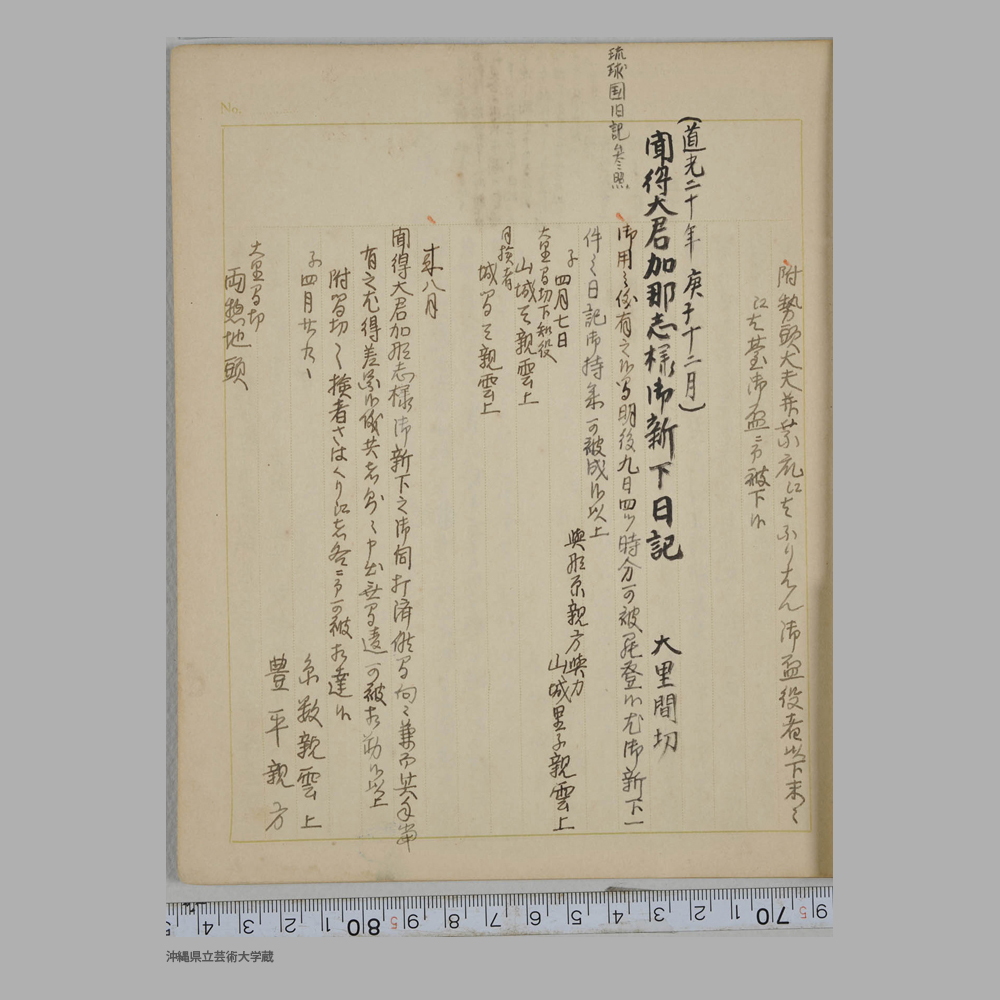 附勢頭大夫并
江者基御盃ニ而被下候
(道光二十年庚子十二月)
聞得大君加那志様御新下日記 大里間切
琉球国旧記参照
御用之儀有之候間明後九日四ツ時分可被罷登候尤御新下一
件之日記御持参可被成候以上
子四月七日
與那原親方與力
山城里子親雲上
大里間切下知役
山城之親雲上
同検者
城間之親雲上
来八月
聞得大君加那志様御新下之御伺相済候間向々兼而其手当
有之尤得差図候儀共者早々申出無間違可被相勤候以上
附間切之検者さはくり江者各ニ而可被相達候
子四月廿九日
糸数親雲上
豊平親方
大里間切
両惣地頭
No.
沖縄県立芸術大学蔵